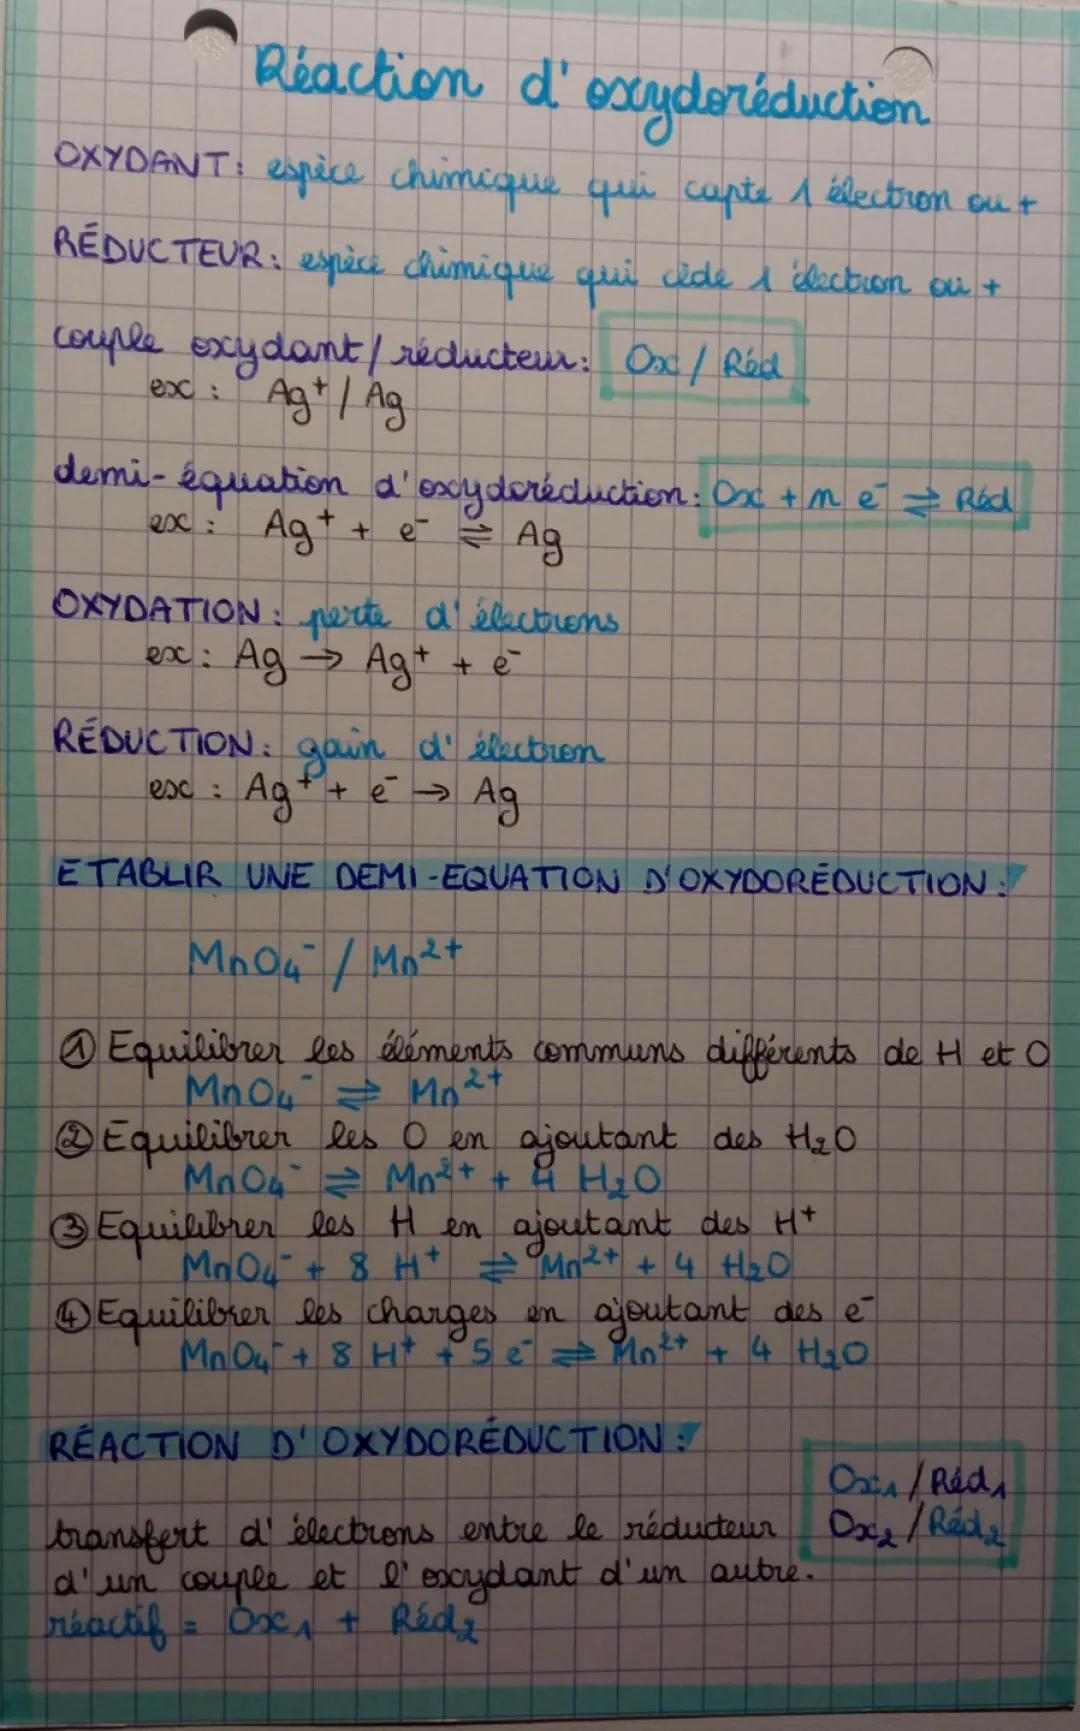 Réaction d'oxydoréduction
OXYDANT: espèce chimique qui capte 1 électron ou +
RÉDUCTEUR: espèce chimique qui cède 1 électron ou +
couple oxydant/réducteur: Ox / Réd
ex : Ag⁺ / Ag
demi-équation d'oxydoréduction: Ox + n e⁻ ⇌ Réd
ex : Ag⁺ + e⁻ ⇌ Ag
OXYDATION: perte d'électrons
ex : Ag → Ag⁺ + e⁻
RÉDUCTION: gain d'électron
ex : Ag⁺ + e⁻ → Ag
ETABLIR UNE DEMI-EQUATION D'OXYDORÉDUCTION:
MnO₄⁻ / Mn²⁺
① Equilibrer les éléments communs différents de H et O
MnO₄⁻ ⇌ Mn²⁺
② Equilibrer les O en ajoutant des H₂O
MnO₄⁻ ⇌ Mn²⁺ + 4 H₂O
③ Equilibrer les H en ajoutant des H⁺
MnO₄⁻ + 8 H⁺ ⇌ Mn²⁺ + 4 H₂O
④ Equilibrer les charges en ajoutant des e⁻
MnO₄⁻ + 8 H⁺ + 5 e⁻ ⇌ Mn²⁺ + 4 H₂O
RÉACTION D'OXYDORÉDUCTION:
Ox₁ / Réd₁
Ox₂ / Réd₂
transfert d'électrons entre le réducteur
d'un couple et l'oxydant d'un autre.
réactif = Ox₁ + Réd₂